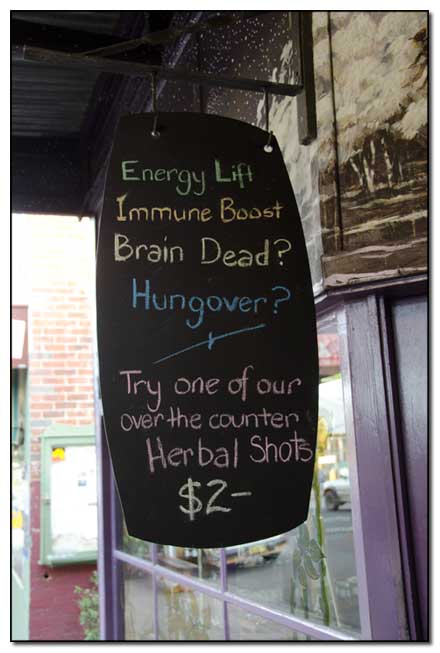 Energy Lift
Immune Boost
Brain Dead?
Hungover?
Try one of our
over the counter
Herbal Shots
$2-